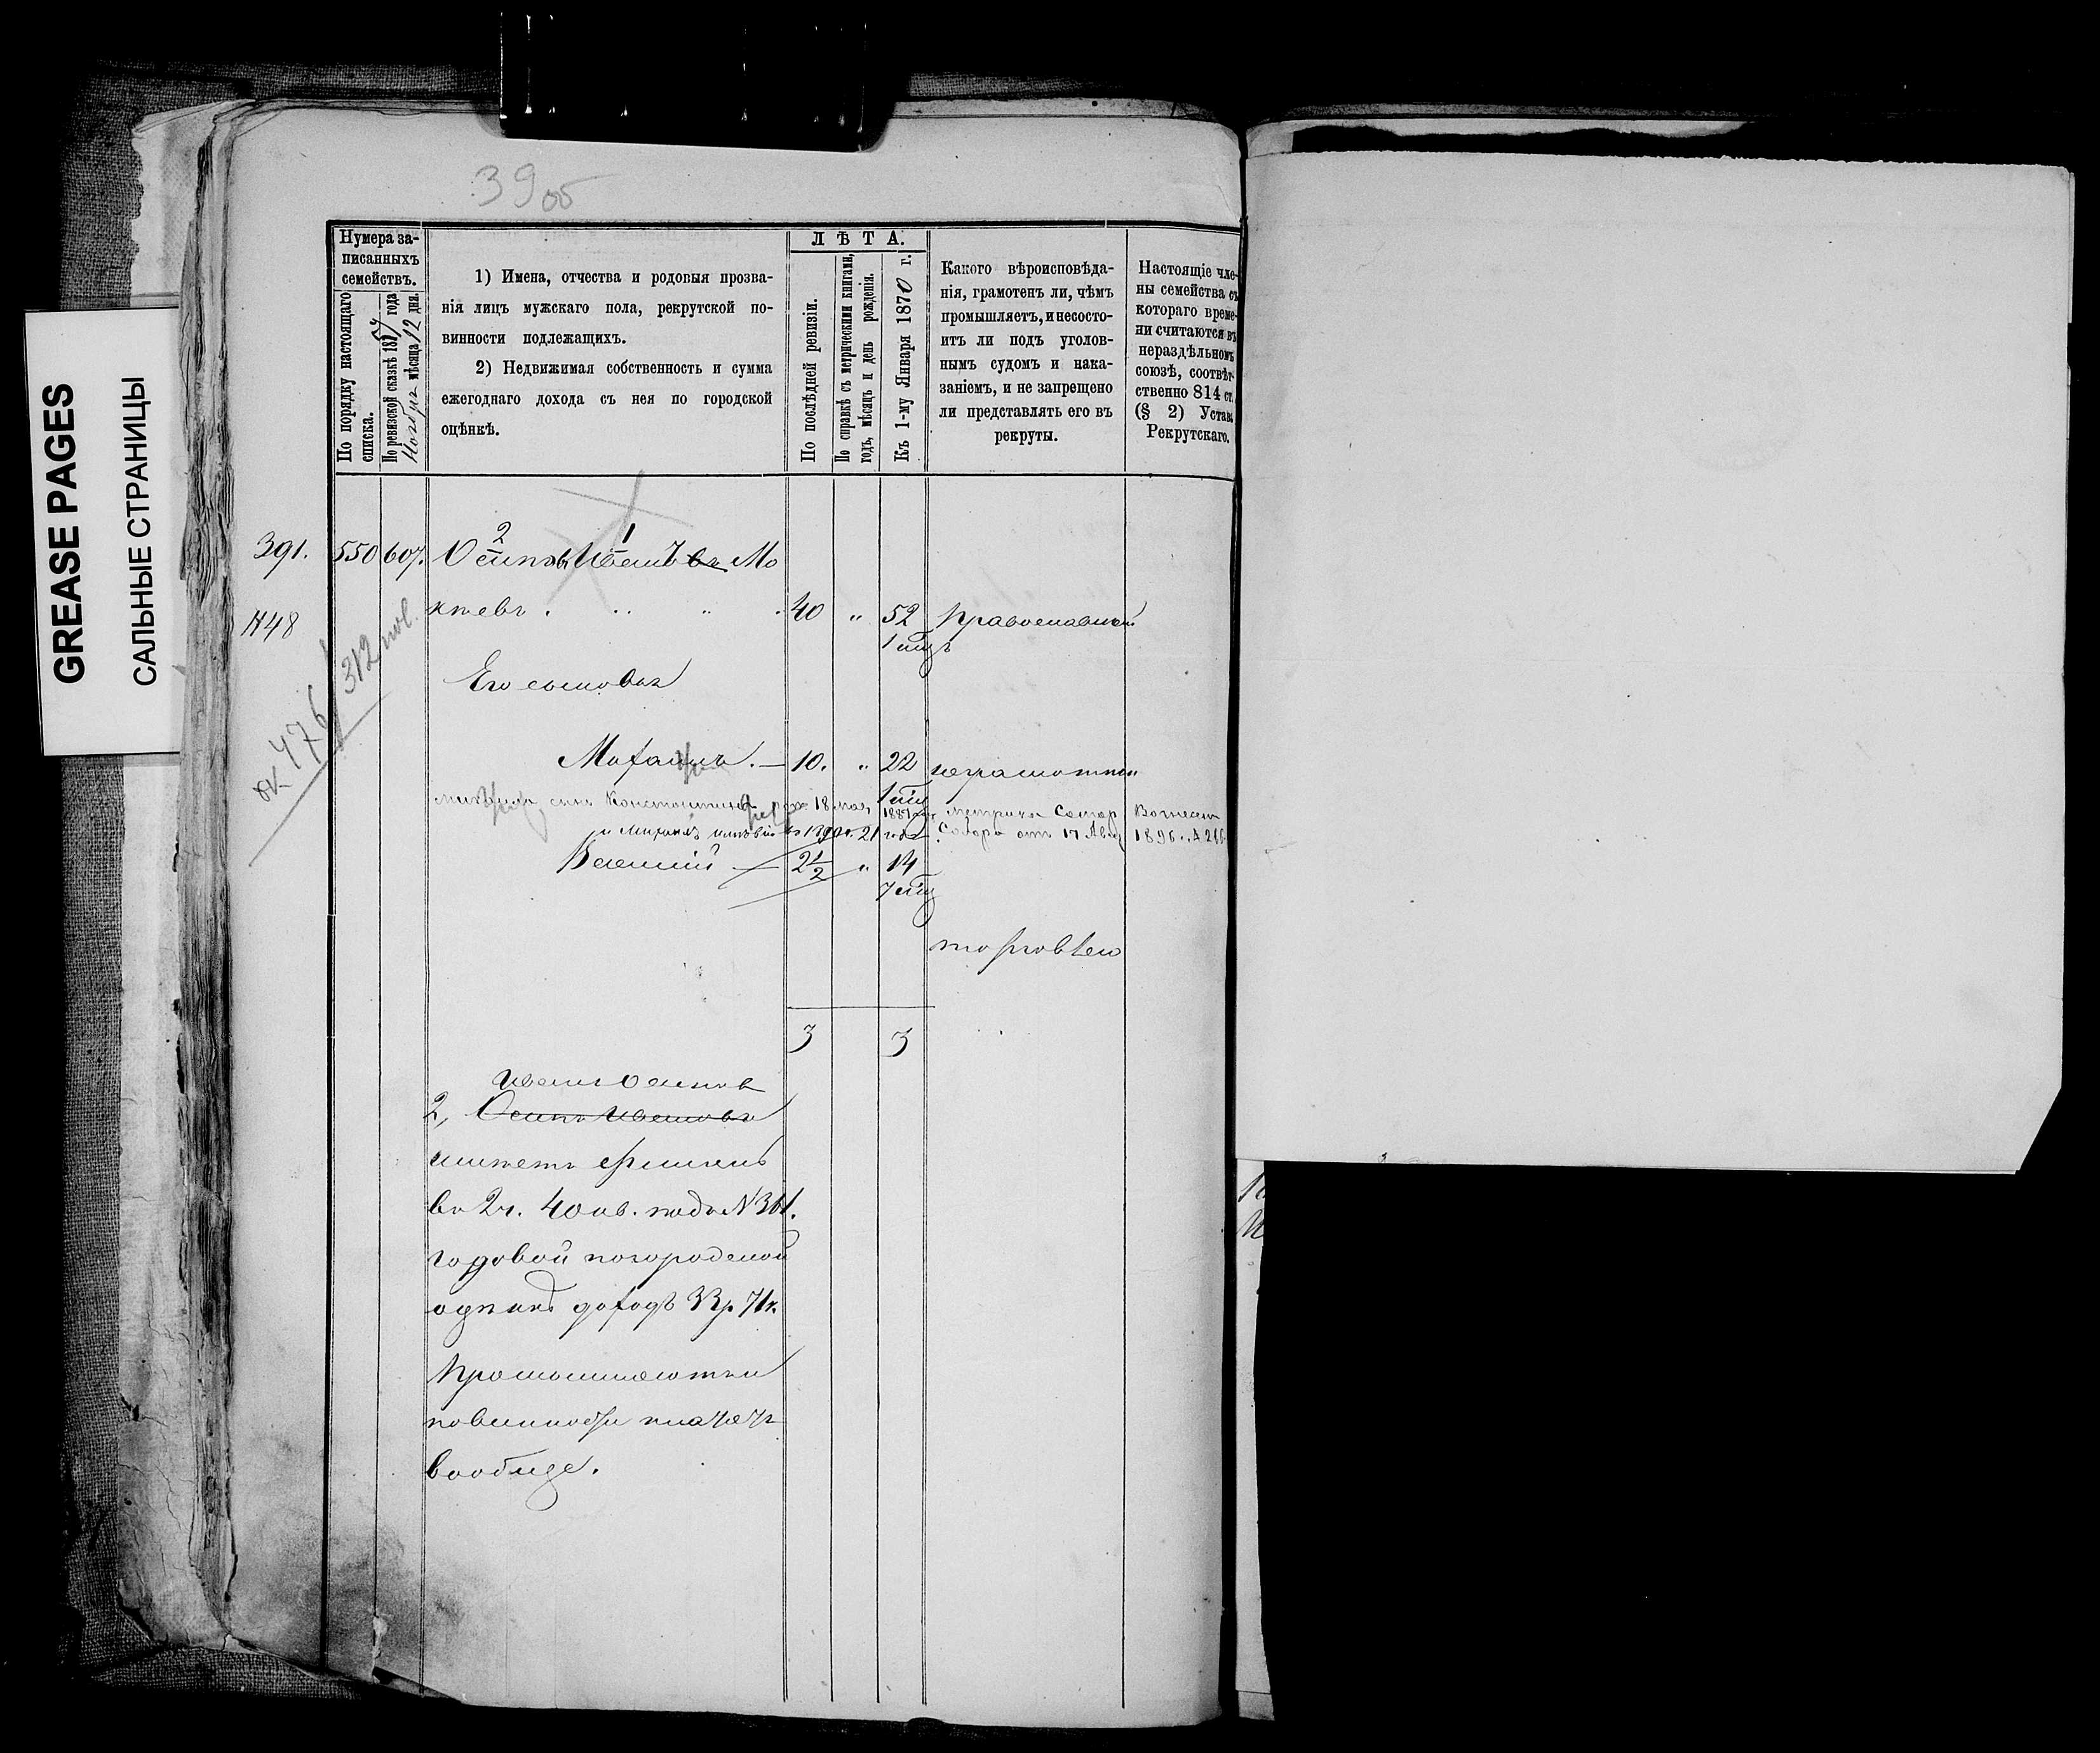 GREASE PAGES
САЛЬНЫЕ СТРАНИЦЫ
39об
Нумера за-
писанныхъ
семействъ.
По порядку настоящаго
списка.
По ревизской сказкѣ 1857 года
Ноября мѣсяца 12 дня.
1) Имена, отчества и родовыя прозва-
нія лицъ мужскаго пола, рекрутской по-
винности подлежащихъ.
2) Недвижимая собственность и сумма
ежегоднаго дохода съ нея по городской
оцѣнкѣ.
ЛѢТА.
По послѣдней ревизіи.
По справкѣ съ метрическими книгами,
годъ, мѣсяцъ и день рожденія.
Къ 1-му Января 1870 г.
Какого вѣроисповѣда-
нія, грамотенъ ли, чѣмъ
промышляетъ, и несосто-
итъ ли подъ уголов-
нымъ судомъ и нака-
заніемъ, и не запрещено
ли представлять его въ
рекруты.
Настоящіе чле-
ны семейства съ
котораго време-
ни считаются въ
нераздѣльномъ
союзѣ, соотвѣт-
ственно 814 ст.
(§ 2) Устав.
Рекрутскаго.
2 1
391. 550 607. Осипъ Иванъ Мо
N48 ктевъ . 40 " 52 Православнаго
476 312
Его сыновья
Михаилъ. — 10. " 22 неграмотны
сынъ Константинъ 18 мая 1887 Вознесен
и Михаилъ 21 года Собора отъ 17 Авг 1896 г.
Василий — 2½ " 14
торговлею
3 3
Иванъ Осиповъ
2, Осипъ Ивановъ
имѣетъ
въ 2ч. 40 кв. подъ N 361.
годовой по городской
оцѣнкѣ доходъ 33р 71к.
Промышляютъ и
повинности платятъ
вообще.